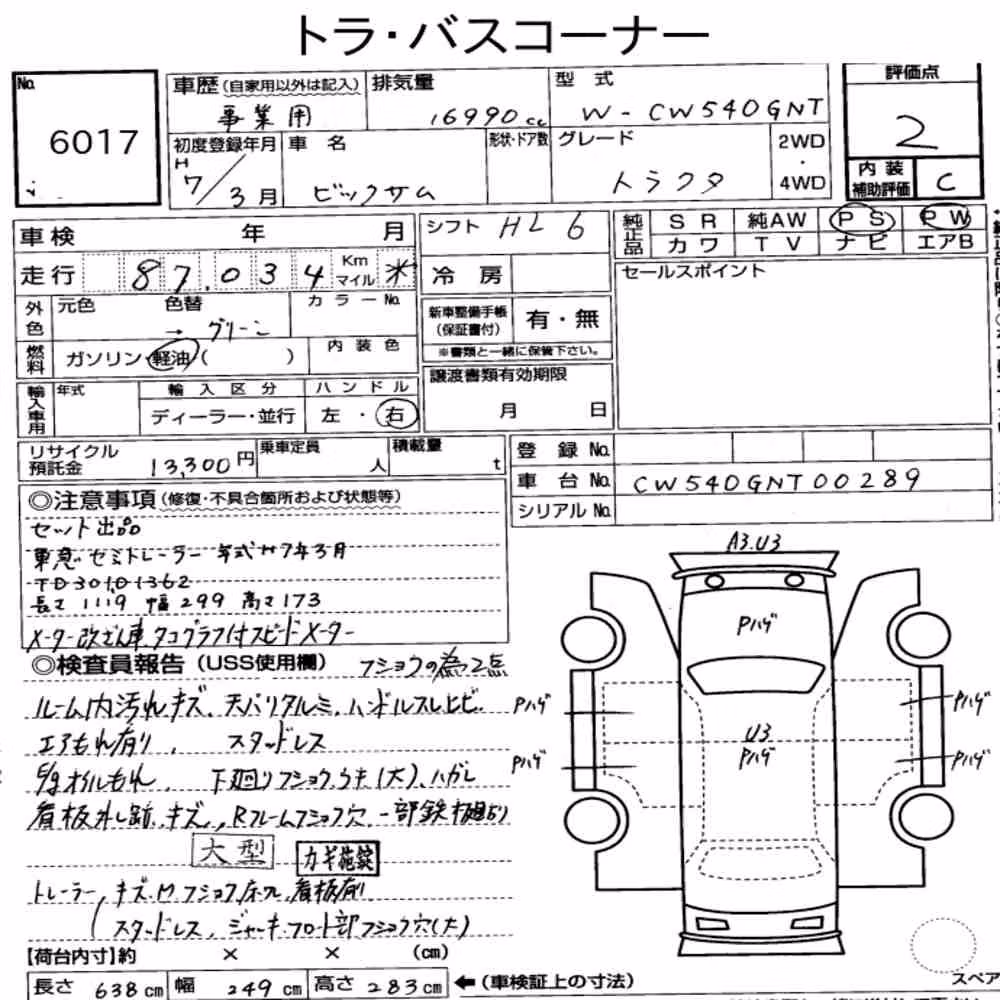 トラ・バスコーナー
No.
6017
車歴 (自家用以外は記入)
事業用
排気量
16990cc
型式
W-CW540GNT
評価点
2
初度登録年月
H 7/3月
車名
ビックサム
形状・ドア数
グレード
トラクタ
2WD
・
4WD
内装
補助評価
C
車検 年 月
シフト HL6
純正品
SR 純AW PS PW
カワ TV ナビ エアB
走行 87,034 Km マイル *
冷房
セールスポイント
外色
元色 色替
→ グリーン
カラーNo.
新車整備手帳
(保証書付)
有・無
※書類と一緒に保管下さい。
燃料
ガソリン・軽油( )
内装色
譲渡書類有効期限
月 日
輸入車用
年式
輸入区分
ディーラー・並行
ハンドル
左・右
リサイクル
預託金
13,300円
乗車定員
人
積載量
t
登録No.
車台No. CW540GNT00289
シリアルNo.
◎注意事項(修復・不具合箇所および状態等)
セット出品
東急セミトレーラー 年式H7年3月
TD301D1362
長さ1119 幅299 高さ173
メーター改ざん車 タコグラフ付スピードメーター
◎検査員報告 (USS使用欄) フショクの為2点
ルーム内汚れキズ、天バリタルミ、ハンドルスレヒビ
エアもれ有り、スタッドレス
オイルもれ、下廻りフショク、サキ(大)、ハガレ
看板外し跡、キズ、Rフレームフショク穴、一部鉄板貼り
大型 カギ施錠
トレーラー、キズ、フショク、看板有り
(スタッドレス、ジャッキフロート部フショク穴(大)
A3.U3
Pハゲ
Pハゲ
Pハゲ
U3
Pハゲ
Pハゲ
Pハゲ
【荷台内寸】約 × × (cm)
長さ 638cm 幅 249cm 高さ 283cm ←(車検証上の寸法)
スペア